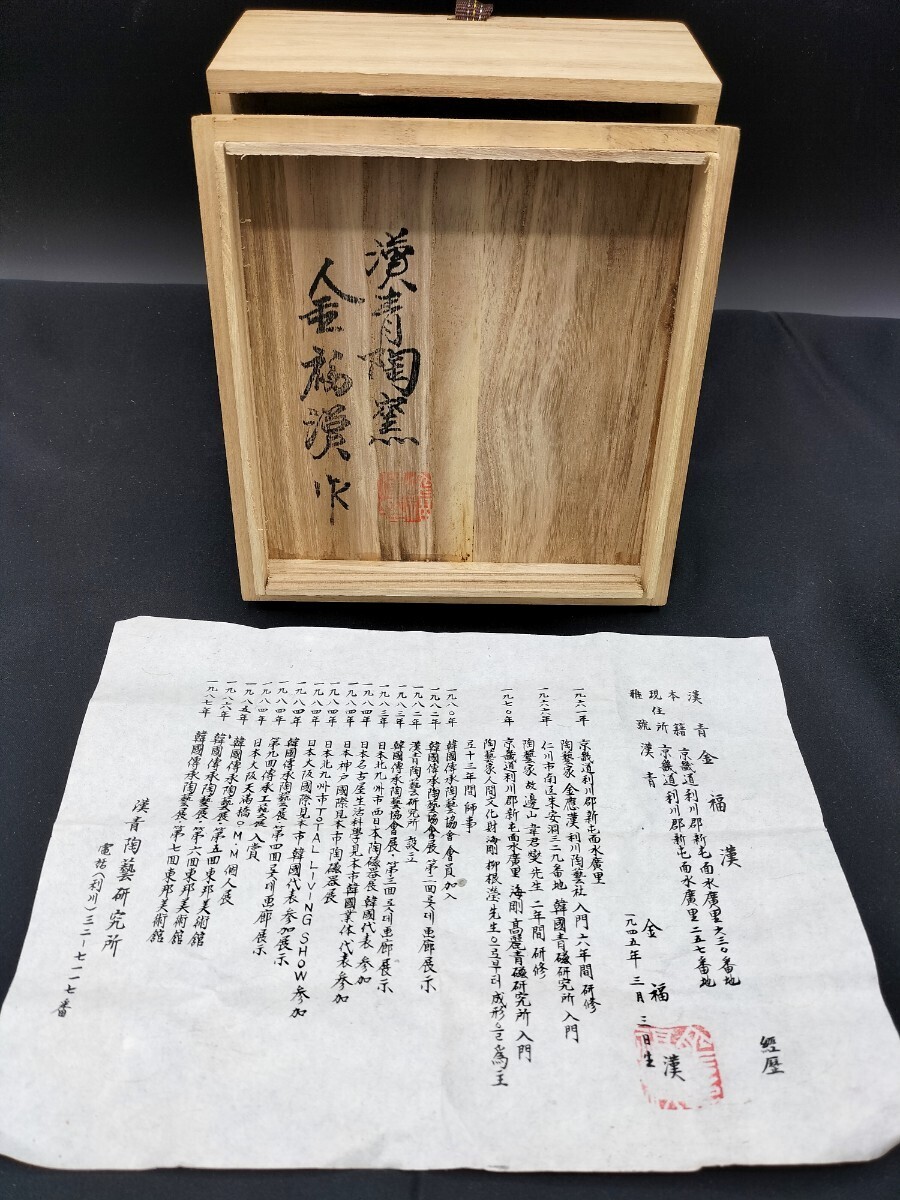 漢青陶窯
金福漢作
經歷
漢青 金福漢
本籍 京畿道利川郡新屯面水廣里六三〇番地
現住所 京畿道利川郡新屯面水廣里二五七番地
雅號 漢青
金福漢
一九四五年 三月 三日生
一九六一年 京畿道利川郡新屯面水廣里
陶藝家 金應漢 利川陶藝社 入門 六年間 研修
仁川市南區朱安洞三二九番地 韓國青磁研究所 入門
陶藝家 故邊山 韋君燮 先生 二年間 研修
一九七〇年 京畿道利川郡新屯面水廣里 海剛 高麗青磁研究所 入門
陶藝家人間文化財 海剛 柳根瀅 先生으로부터 成形을 爲主
로 十三年間 師事
一九八〇年 韓國傳承陶藝協會 會員加入
一九八二年 韓國傳承陶藝協會展 第二回 롯데画廊 展示
一九八二年 漢青陶藝研究所 設立
一九八三年 韓國傳承陶藝協會展 第三回 롯데画廊 展示
一九八三年 日本北九州市西日本陶磁器展 韓國代表 参加
一九八四年 日本名古屋生活科學見本市韓國業体代表参加
一九八四年 日本神戸國際見本市陶磁器展
一九八四年 日本北九州市 TOTAL LIVING SHOW 参加
一九八四年 日本大阪國際見本市韓國代表参加展示
一九八四年 韓國傳承陶藝展 第四回 롯데画廊 展示
一九八四年 第九回傳承工藝展 入賞
一九八五年 日本大阪天満橋 O.M.M 個人展
一九八六年 韓國傳承陶藝展 第五回 東邦美術館
韓國傳承陶藝展 第六回 東邦美術館
一九八七年 韓國傳承陶藝展 第七回 東邦美術館
漢青陶藝研究所
電話(利川)三二-七一一七番